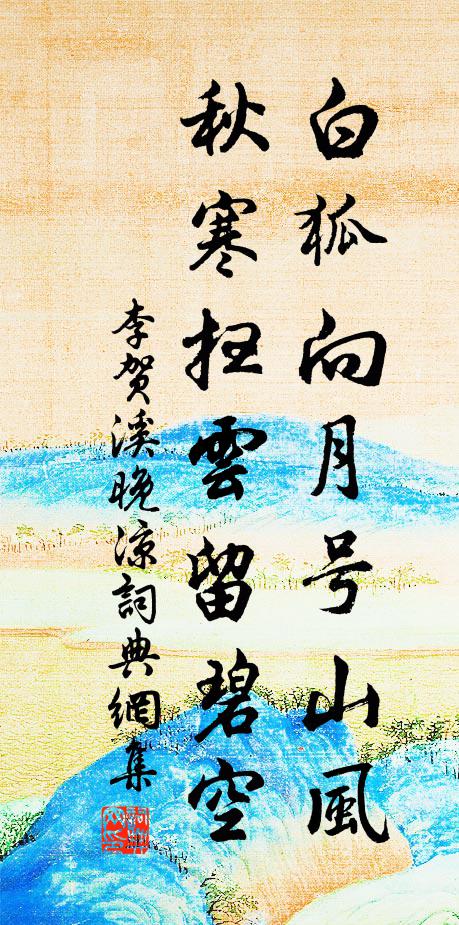 白狐向月号山風
秋寒扫雲留碧空
李賀溪晚凉詞典網集